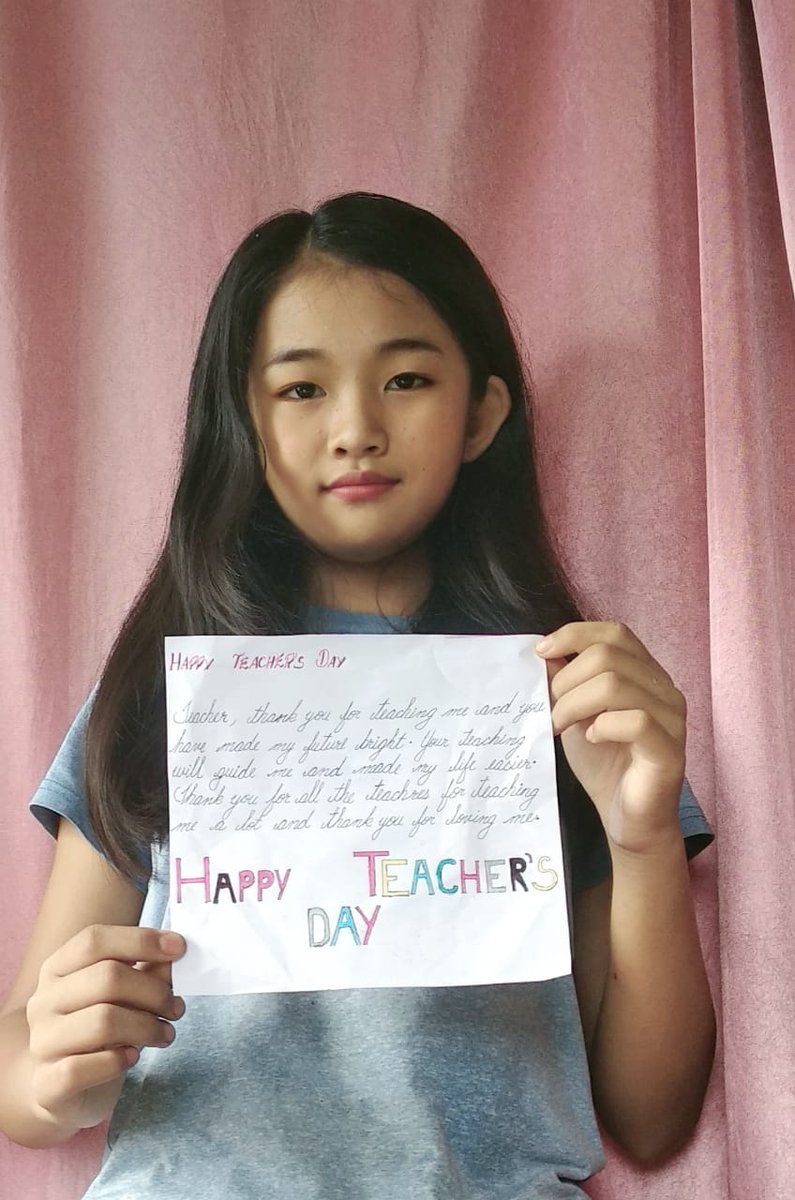 HAPPY TEACHER'S DAY
Teacher, thank you for teaching me and you
have made my future bright. Your teaching
will guide me and made my life easier.
Thank you for all the teachres for teaching
me a lot and thank you for loving me.
HAPPY TEACHER'S
DAY